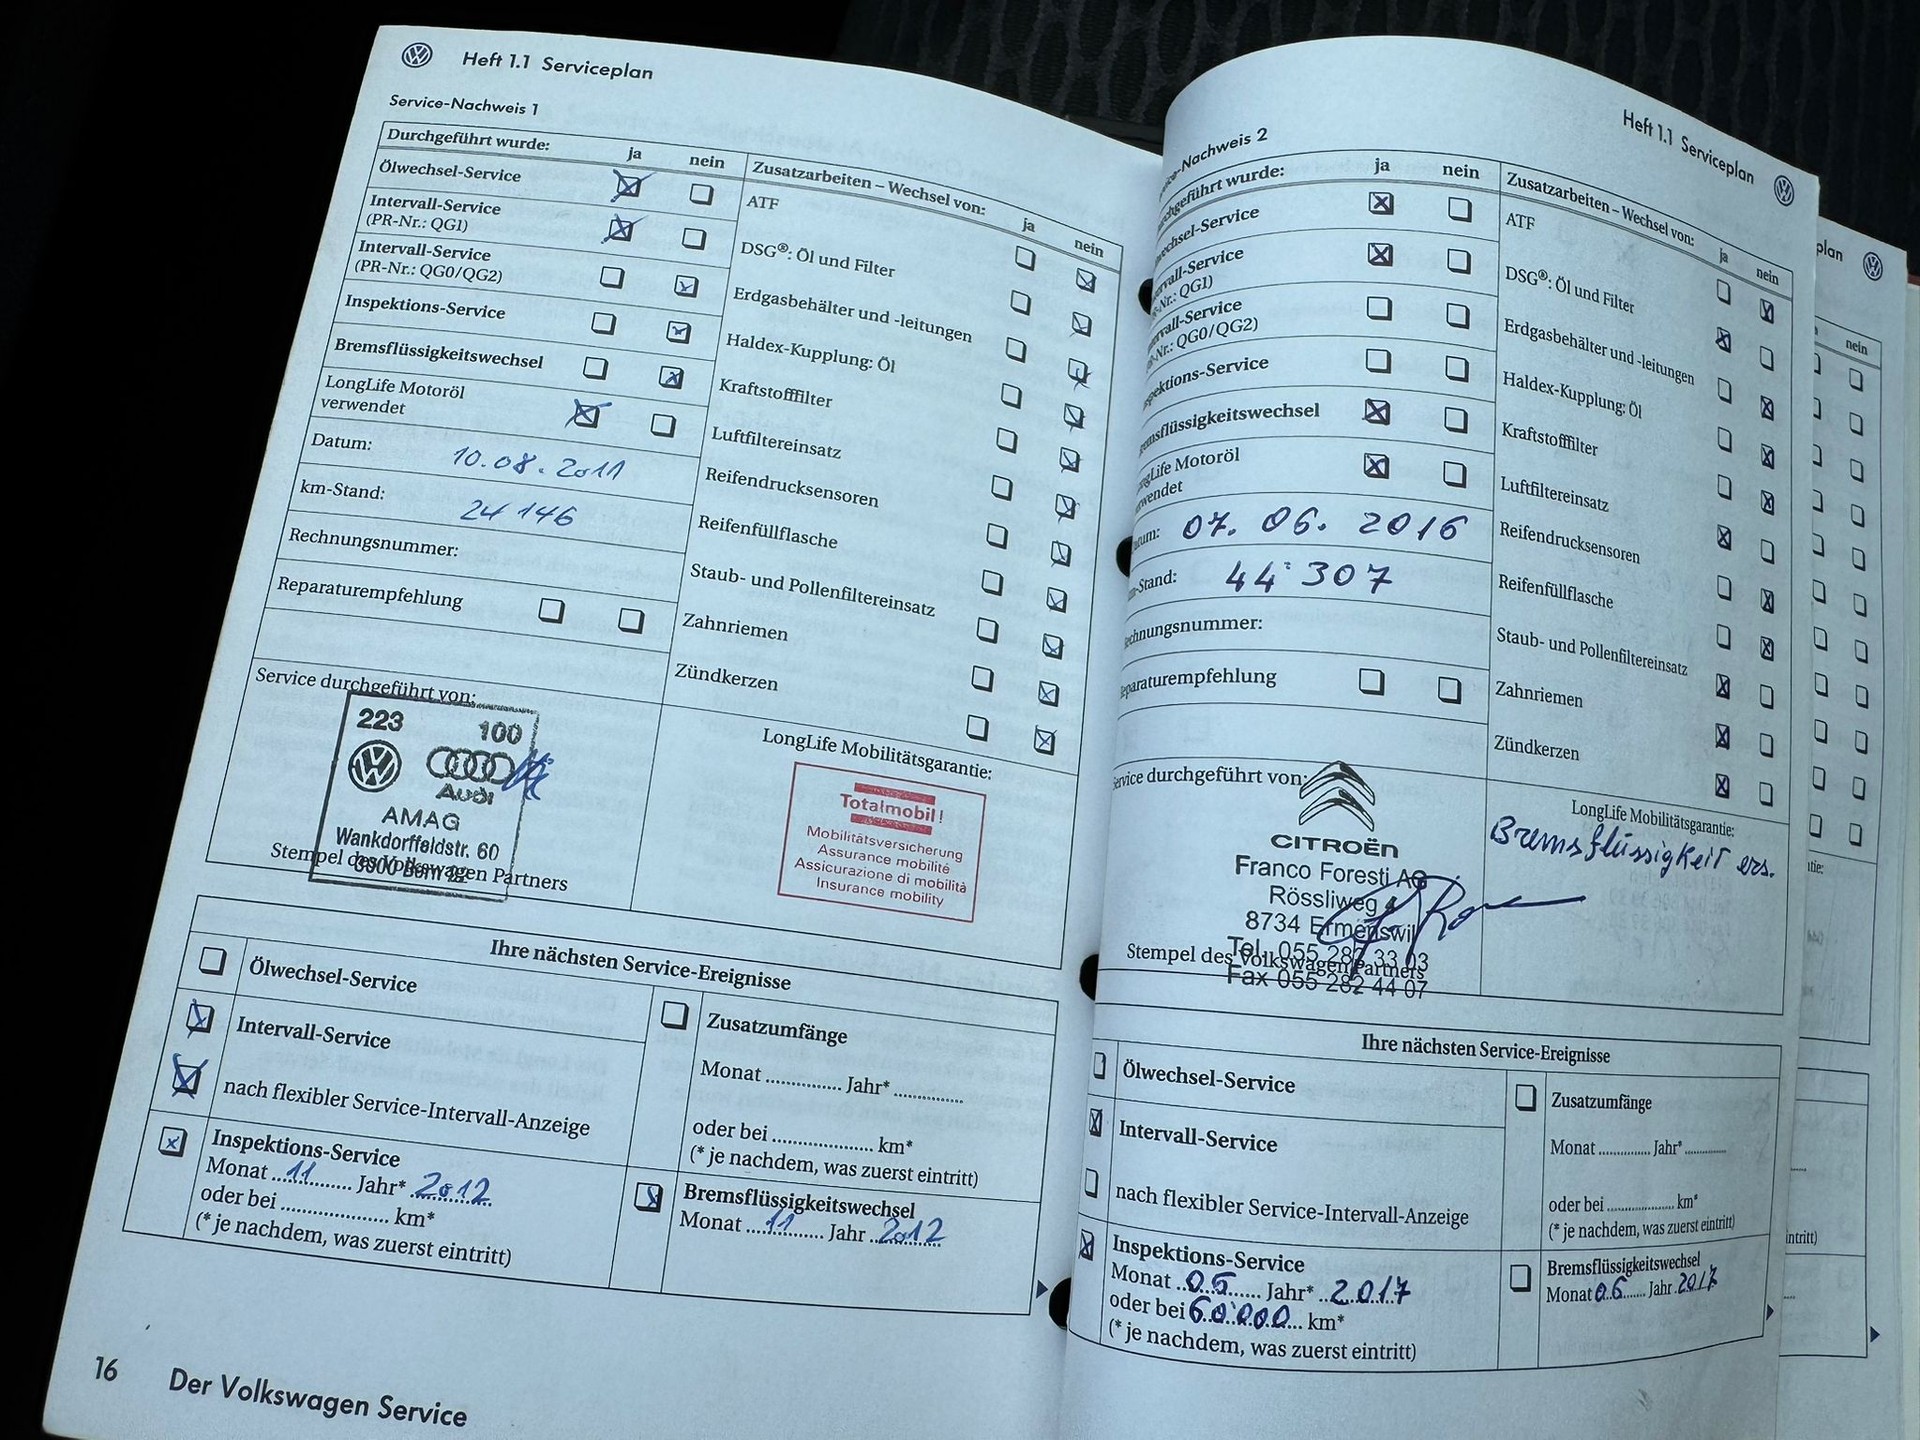 Heft 1.1 Serviceplan
Service-Nachweis 1
Durchgeführt wurde: ja nein
Ölwechsel-Service
Intervall-Service
(PR-Nr.: QG1)
Intervall-Service
(PR-Nr.: QG0/QG2)
Inspektions-Service
Bremsflüssigkeitswechsel
LongLife Motoröl
verwendet
Datum: 10.08.2011
km-Stand: 24 146
Rechnungsnummer:
Reparaturempfehlung
Zusatzarbeiten – Wechsel von: ja nein
ATF
DSG®: Öl und Filter
Erdgasbehälter und -leitungen
Haldex-Kupplung: Öl
Kraftstofffilter
Luftfiltereinsatz
Reifendrucksensoren
Reifenfüllflasche
Staub- und Pollenfiltereinsatz
Zahnriemen
Zündkerzen
Service durchgeführt von:
223 100
Audi
AMAG
Wankdorffeldstr. 60
3000 Bern 22
Stempel des Volkswagen Partners
LongLife Mobilitätsgarantie:
Totalmobil!
Mobilitätsversicherung
Assurance mobilité
Assicurazione di mobilità
Insurance mobility
Ihre nächsten Service-Ereignisse
Ölwechsel-Service
Intervall-Service
nach flexibler Service-Intervall-Anzeige
Inspektions-Service
Monat 11 Jahr* 2012
oder bei .................... km*
(* je nachdem, was zuerst eintritt)
Zusatzumfänge
Monat .............. Jahr* .............
oder bei .................. km*
(* je nachdem, was zuerst eintritt)
Bremsflüssigkeitswechsel
Monat 11 Jahr 2012
16 Der Volkswagen Service
Heft 1.1 Serviceplan
-Nachweis 2
geführt wurde: ja nein
wechsel-Service
ervall-Service
R-Nr.: QG1)
ervall-Service
R-Nr.: QG0/QG2)
spektions-Service
emsflüssigkeitswechsel
ongLife Motoröl
wendet
atum: 07. 06. 2016
m-Stand: 44'307
echnungsnummer:
eparaturempfehlung
Zusatzarbeiten – Wechsel von: ja nein
ATF
DSG®: Öl und Filter
Erdgasbehälter und -leitungen
Haldex-Kupplung: Öl
Kraftstofffilter
Luftfiltereinsatz
Reifendrucksensoren
Reifenfüllflasche
Staub- und Pollenfiltereinsatz
Zahnriemen
Zündkerzen
Service durchgeführt von:
CITROËN
Franco Foresti AG
Rössliweg 4
8734 Ermenswil
Tel. 055 282 33 03
Fax 055 282 44 07
Stempel des Volkswagen Partners
LongLife Mobilitätsgarantie:
Bremsflüssigkeit ers.
Ihre nächsten Service-Ereignisse
Ölwechsel-Service
Intervall-Service
nach flexibler Service-Intervall-Anzeige
Inspektions-Service
Monat 06 Jahr* 2017
oder bei 60'000 km*
(* je nachdem, was zuerst eintritt)
Zusatzumfänge
Monat .............. Jahr* ...........
oder bei .................. km*
(* je nachdem, was zuerst eintritt)
Bremsflüssigkeitswechsel
Monat 06 Jahr 2017
plan
nein
tie:
intritt)